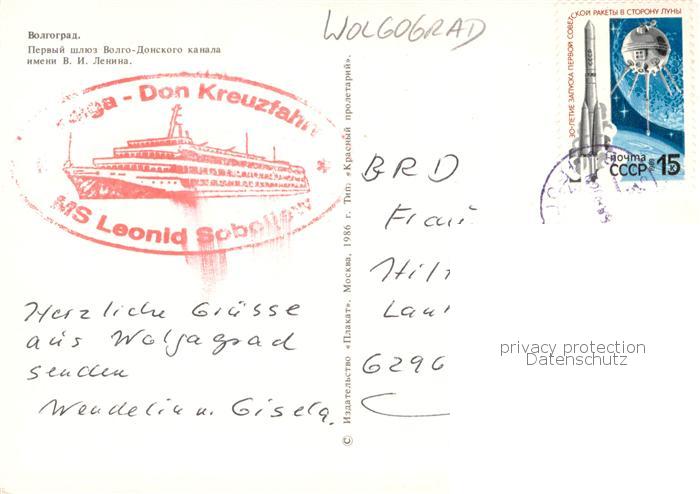 Волгоград.
Первый шлюз Волго-Донского канала
имени В. И. Ленина.
WOLGOGRAD
30-ЛЕТИЕ ЗАПУСКА ПЕРВОЙ СОВЕТСКОЙ РАКЕТЫ В СТОРОНУ ЛУНЫ
СССР
почта
СССР 15
Wolga - Don Kreuzfahrt
MS Leonid Soboljew
Herzliche Grüsse
aus Wolgagrad
senden
Wendelin u. Gisela.
© Издательство «Плакат». Москва, 1986 г. Тип. «Красный пролетарий».
BRD
Frau
6296
privacy protection
Datenschutz